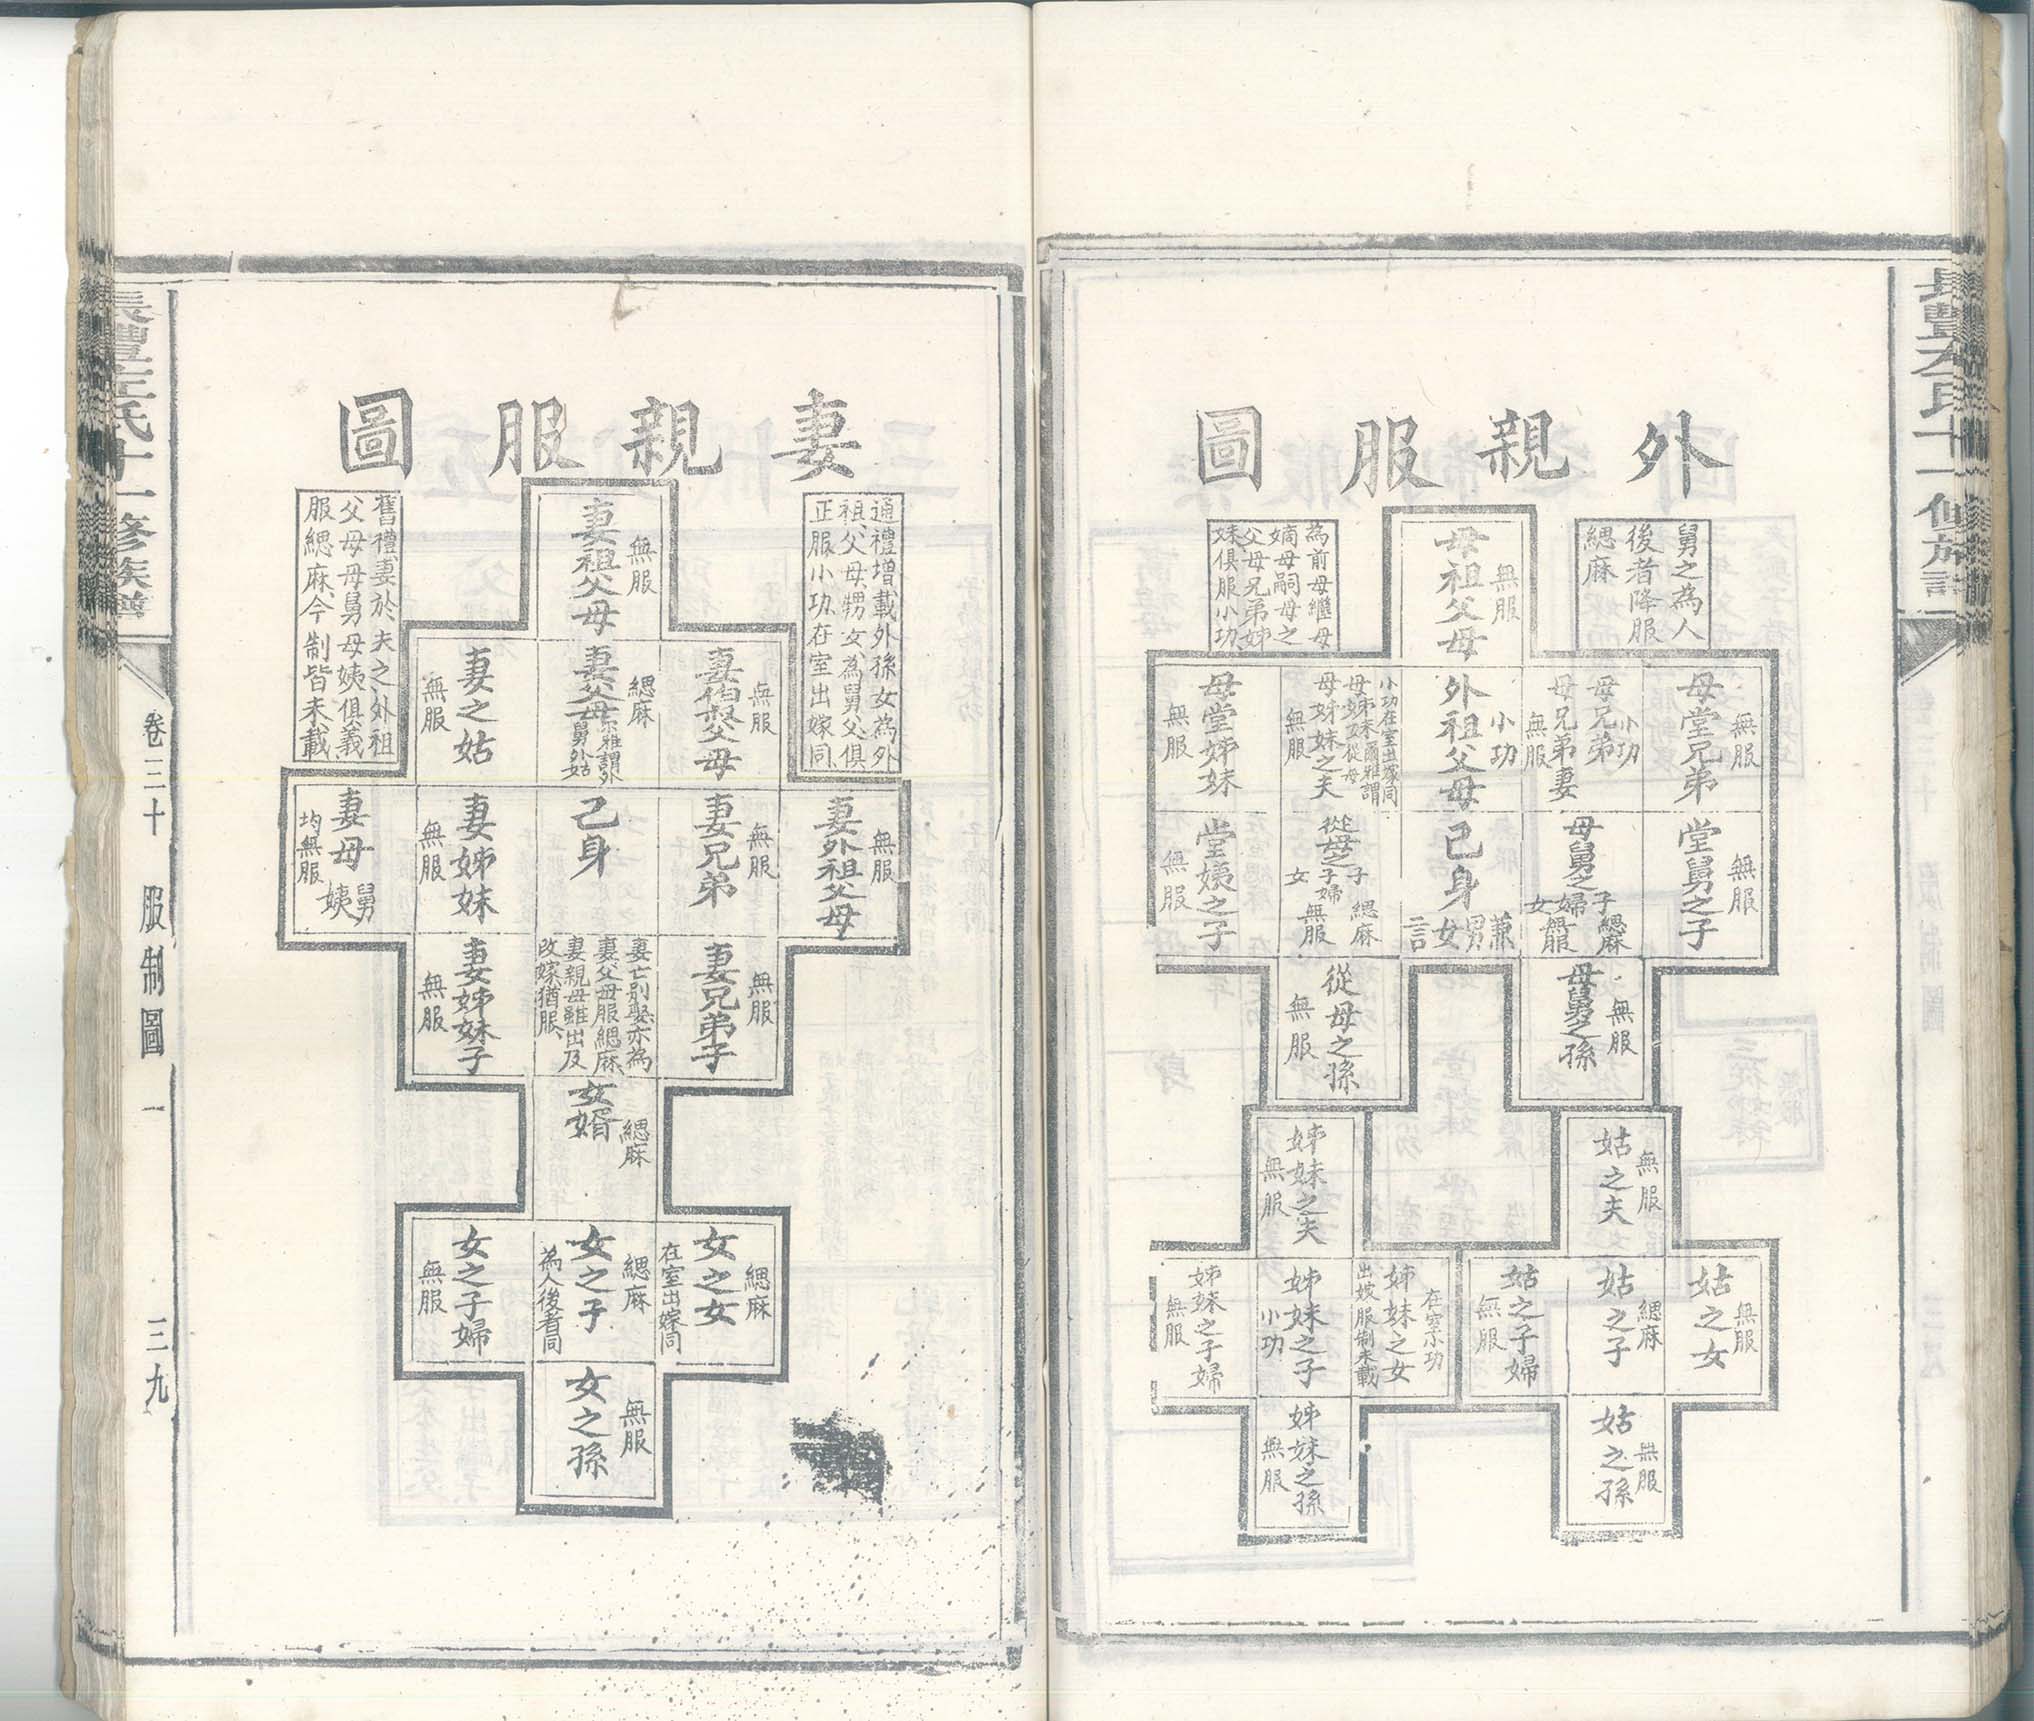 外親服圖
舅之為人
後者降服
緦麻
為前母繼母
嫡母嗣母之
父母兄弟姊
妹俱服小功
母祖父母
無服
母堂兄弟
無服
母兄弟
小功
母兄弟妻
無服
外祖父母
小功
小功在室出嫁同
母姊妹爾雅謂
母姊妹之夫
無服
母堂姊妹
無服
堂舅之子
無服
母舅之子
緦麻
女
婦
無服
己身
兼男女言
從母之子
緦麻
女
婦
無服
堂姨之子
無服
母舅之孫
無服
從母之孫
無服
姑之夫
無服
姊妹之夫
無服
姑之女
無服
姑之子
緦麻
姑之子婦
無服
姊妹之女
在室小功
出嫁服制未載
姊妹之子
小功
姊妹之子婦
無服
姑之孫
無服
姊妹之孫
無服
妻親服圖
通禮增載外孫女為外
祖父母甥女為舅父俱
正服小功在室出嫁同
舊禮妻於夫之外祖
父母母舅母姨俱義
服緦麻今制皆未載
妻祖父母
無服
妻伯叔父母
無服
妻父母
爾雅謂外
舅外姑
緦麻
妻之姑
無服
妻外祖父母
無服
妻兄弟
無服
己身
妻姊妹
無服
妻母舅
姨
均無服
妻兄弟子
無服
妻亡別娶亦為
妻父母服緦麻
妻親母雖出及
改嫁猶服
妻姊妹子
無服
女婿
緦麻
女之女
緦麻
在室出嫁同
女之子
緦麻
為人後者同
女之子婦
無服
女之孫
無服
卷三十
服制圖
一
三九